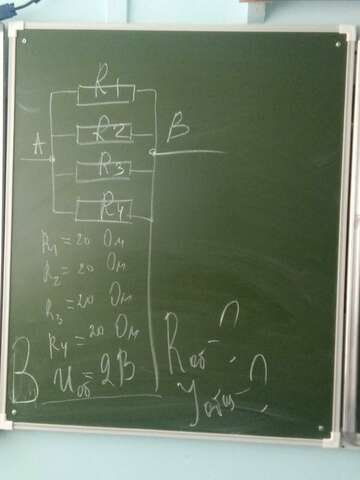 R1
R2
A
B
R3
R4
R1 = 20 Ом
R2 = 20 Ом
R3 = 20 Ом
R4 = 20 Ом
В
Uоб = 2В
Rоб - ?
Jобщ - ?